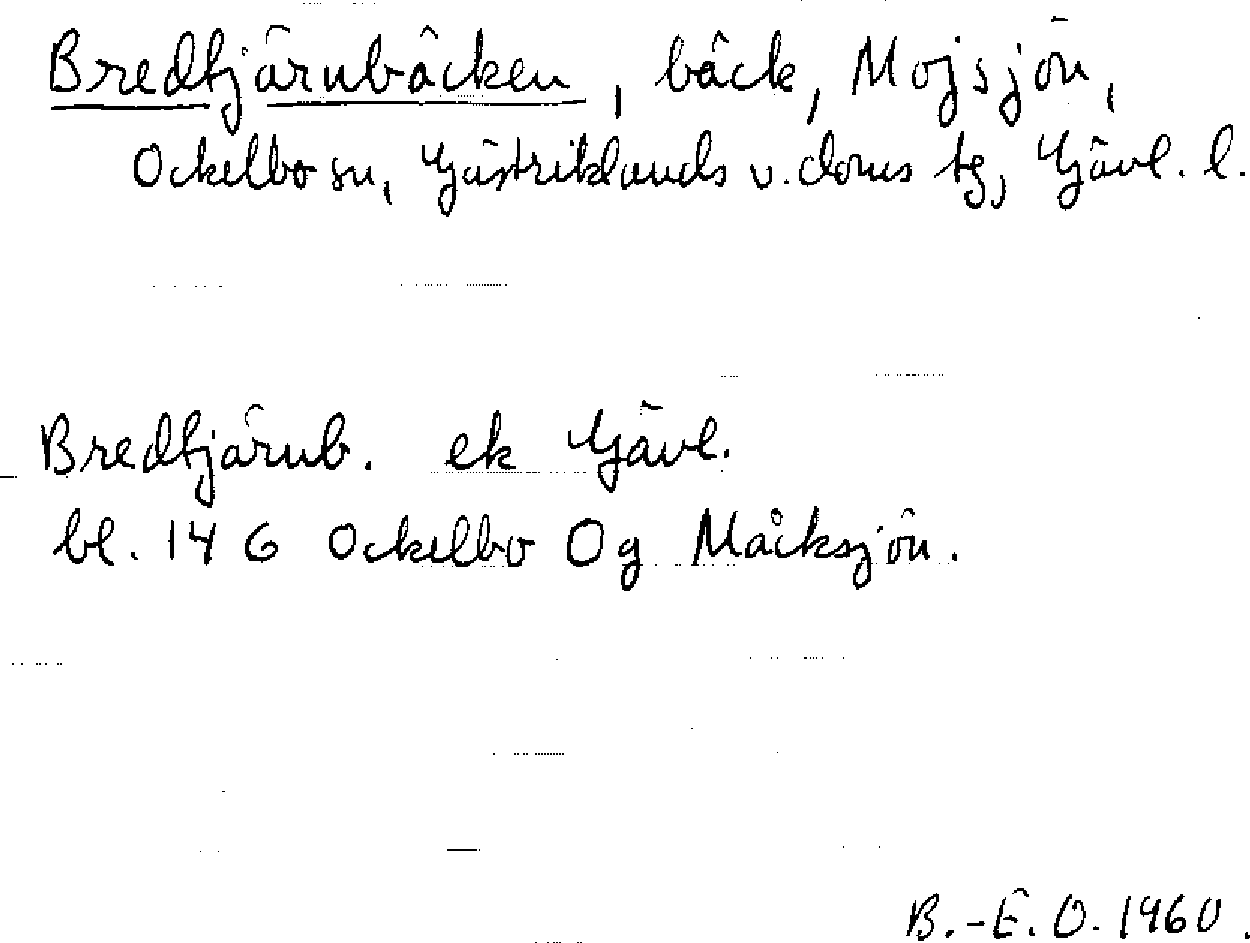 Bredtjärnbäcken, bäck, Mojsjön,
Ockelbo sn, Gästriklands v. doms tg, Gävl. l.
Bredtjärnb. ek Gävl.
bl. 14 G Ockelbo Og Måcksjön.
B.-E. O. 1960.